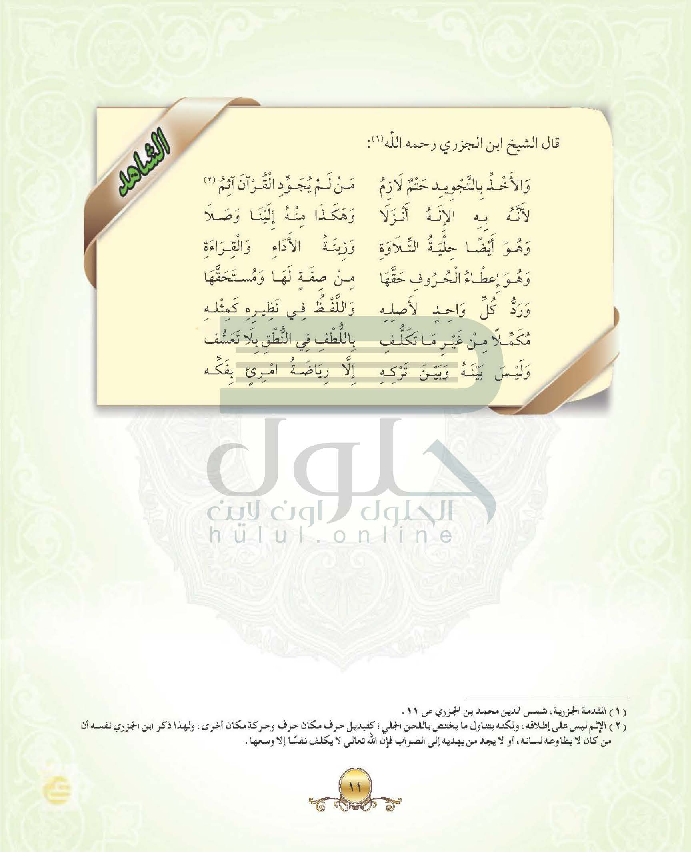 الشاهد
قال الشيخ ابن الجزري رحمه الله(١):
وَالأَخْذُ بِالتَّجْوِيدِ حَتْمٌ لَازِمُ مَنْ لَمْ يُجَوِّدِ الْقُرْآنَ آثِمُ (٢)
لأَنَّهُ بِهِ الإِلَهُ أَنْزَلَا وَهَكَذَا مِنْهُ إِلَيْنَا وَصَلَا
وَهُوَ أَيْضًا حِلْيَةُ التِّلَاوَةِ وَزِينَةُ الأَدَاءِ وَالْقِرَاءَةِ
وَهُوَ إِعْطَاءُ الْحُرُوفِ حَقَّهَا مِنْ صِفَةٍ لَهَا وَمُسْتَحَقَّهَا
وَرَدُّ كُلِّ وَاحِدٍ لأَصْلِهِ وَاللَّفْظُ فِي نَظِيرِهِ كَمِثْلِهِ
مُكَمِّلًا مِنْ غَيْرِ مَا تَكَلُّفِ بِاللُّطْفِ فِي النُّطْقِ بِلَا تَعَسُّفِ
وَلَيْسَ بَيْنَهُ وَبَيْنَ تَرْكِهِ إِلَّا رِيَاضَةُ امْرِئٍ بِفَكِّهِ
حلول
الحلول اون لاين
hulul.online
(١) المقدمة الجزرية، شمس الدين محمد بن الجزري ص ١١.
(٢) الإثم ليس على إطلاقه، ولكنه يتناول ما يختص باللحن الجلي؛ كتبديل حرف مكان حرف وحركة مكان أخرى، ولهذا ذكر ابن الجزري نفسه أن
من كان لا يطاوعه لسانه، أو لا يجد من يهديه إلى الصواب فإن الله تعالى لا يكلف نفسًا إلا وسعها.
١١